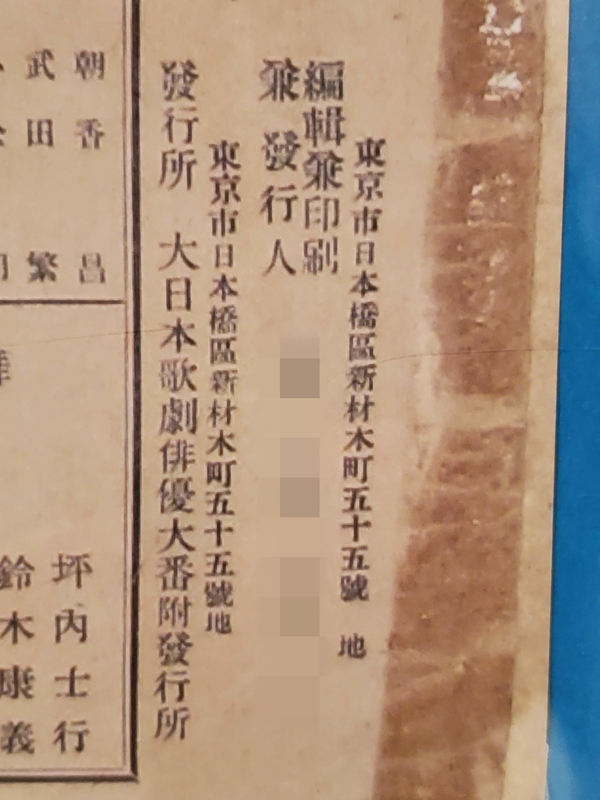 東京市日本橋區新材木町五十五號地
編輯兼印刷
兼發行人
東京市日本橋區新材木町五十五號地
發行所 大日本歌劇俳優大番附發行所
朝香 昌
武田 繁
坪內士行
鈴木康義